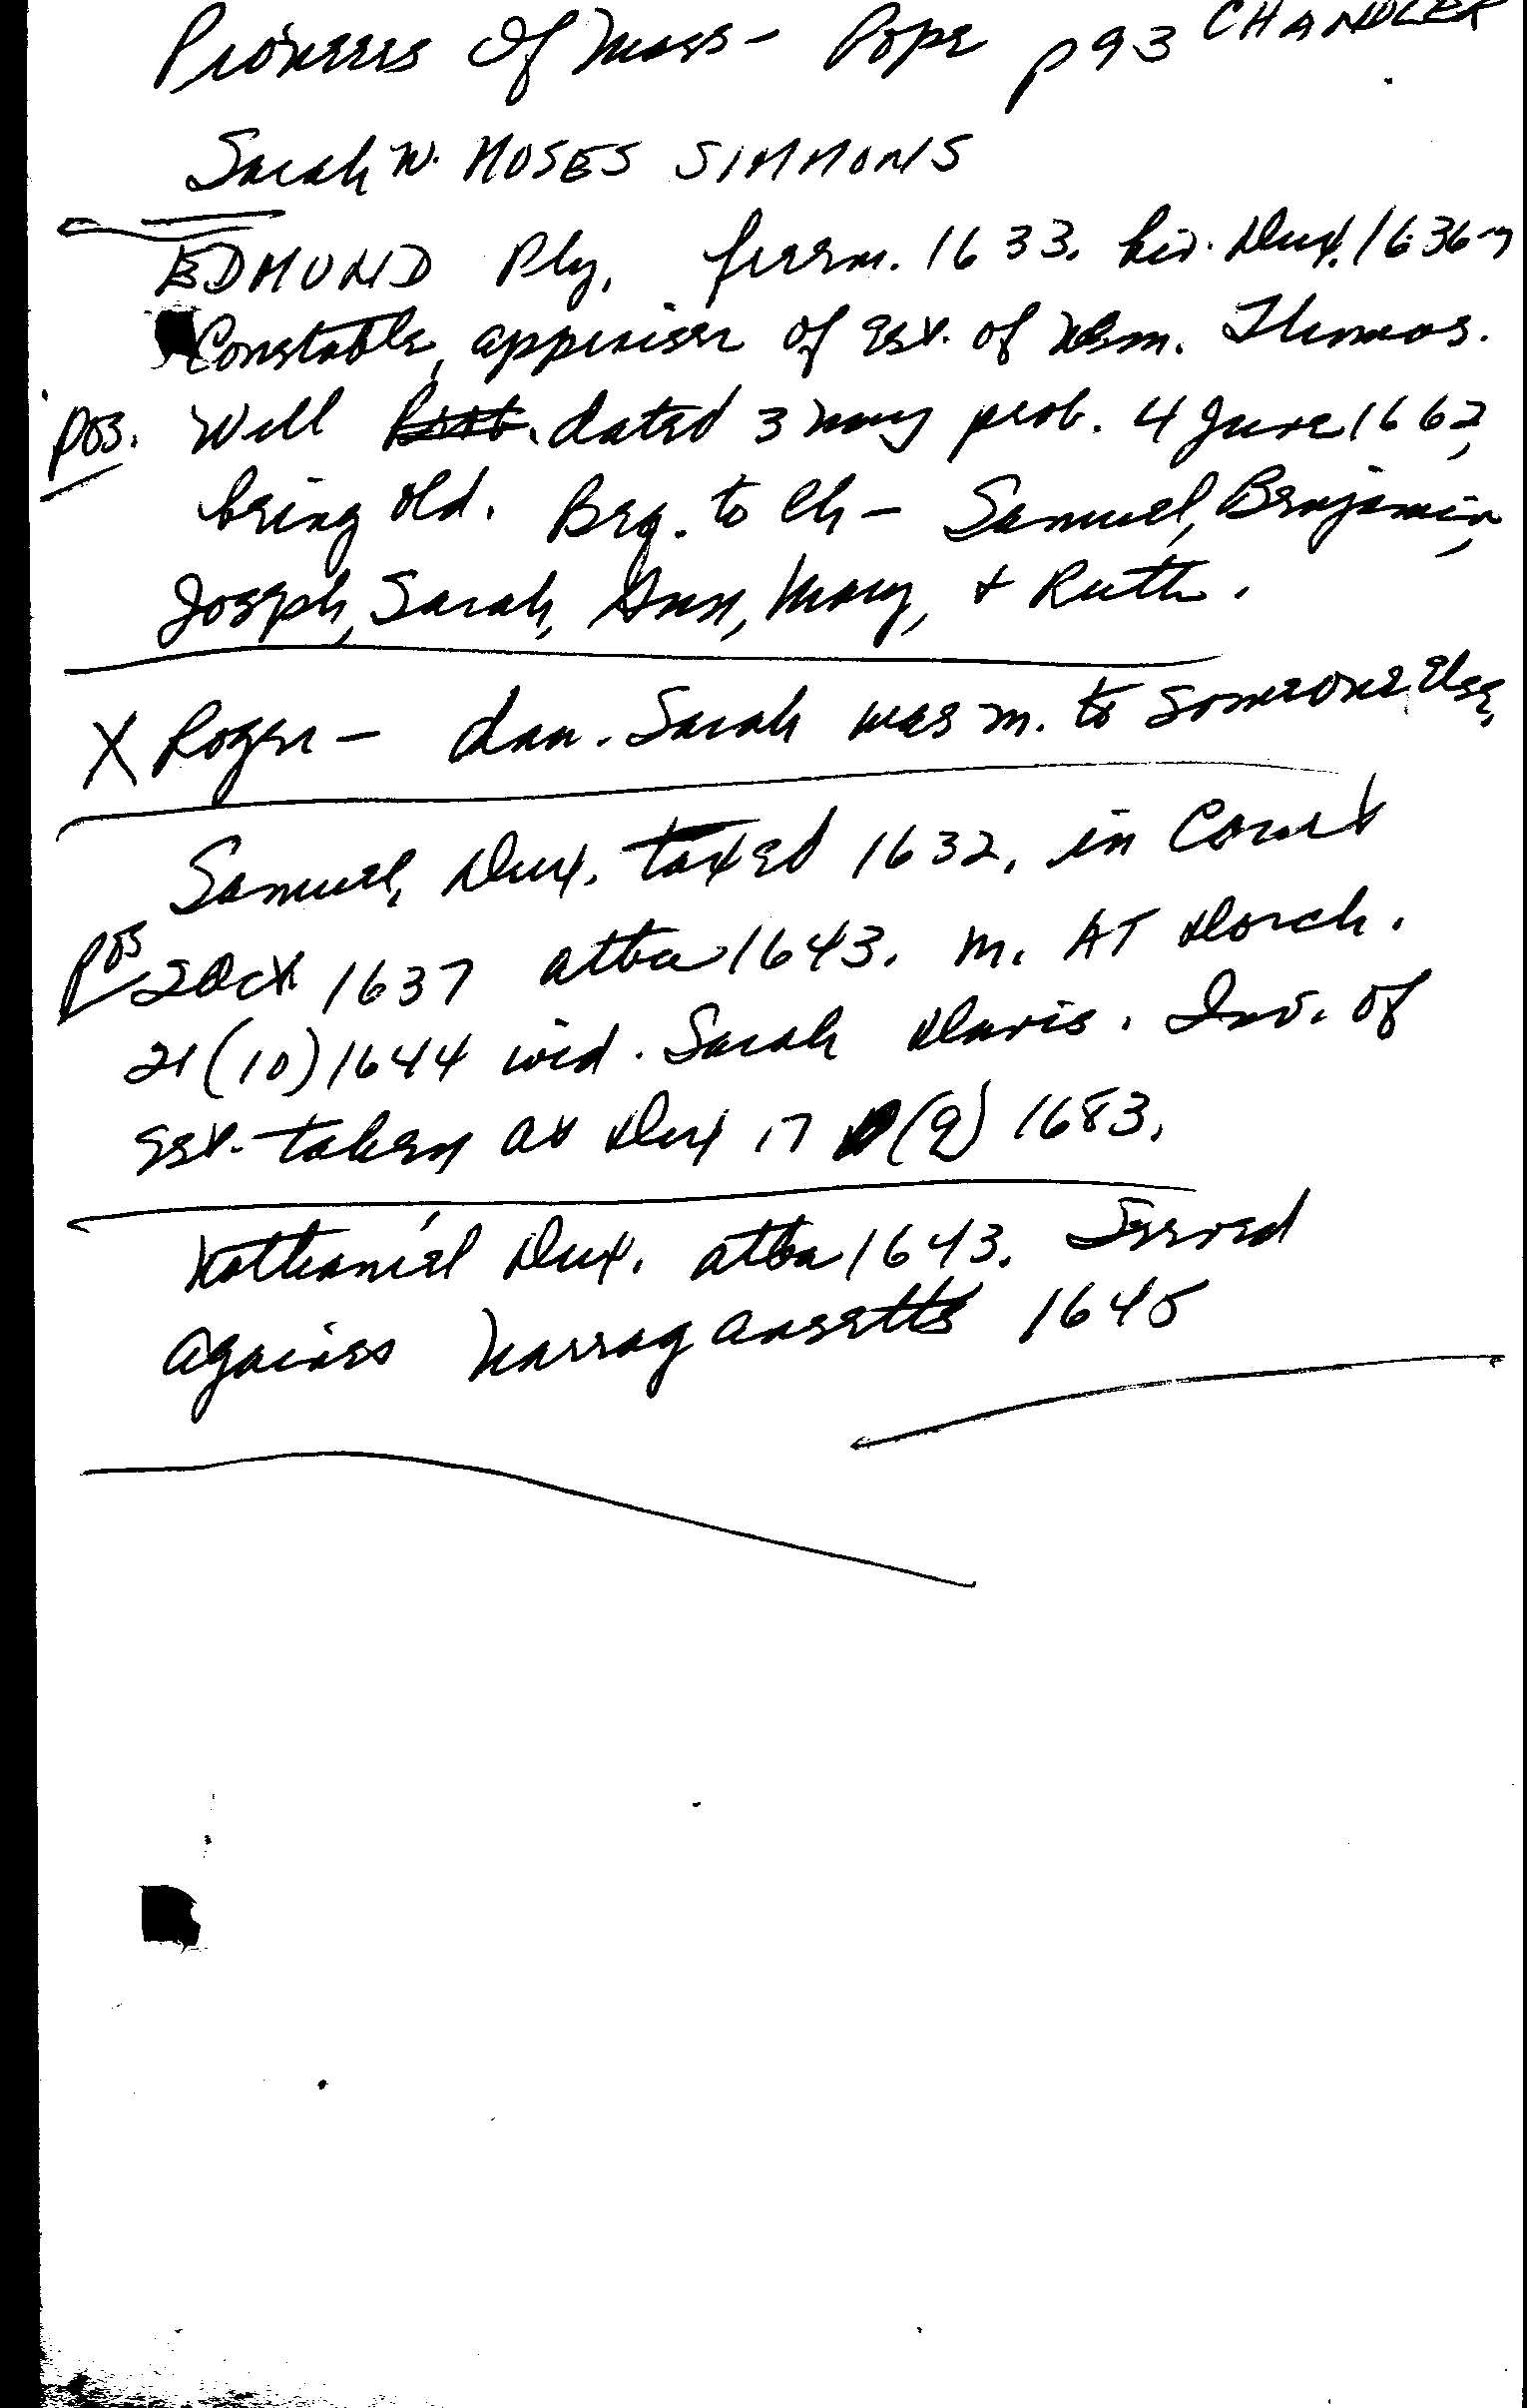 Pioneers Of Mass - Pope p 93 CHANDLER
Sarah W. MOSES SIMMONS
EDMUND Ply. freem. 1633. Liv. Dux. 1636-7
Constable, appraiser of est. of Wm. Thomas.
pos. Will dated 3 May prob. 4 June 1662,
being old. Beq. to Ch - Samuel, Benjamin,
Joseph, Sarah, Ann, Mary, + Ruth.
X Roger - dau. Sarah was m. to someone else,
Samuel, Dux. taxed 1632, in Court
pos 2 Oct 1637 atba 1643. m. AT Dorch.
21 (10) 1644 wid. Sarah Davis. Inv. of
est. taken at Dux 17 (9) 1683.
Nathaniel Dux. atba 1643. Served
against Narragansetts 1645